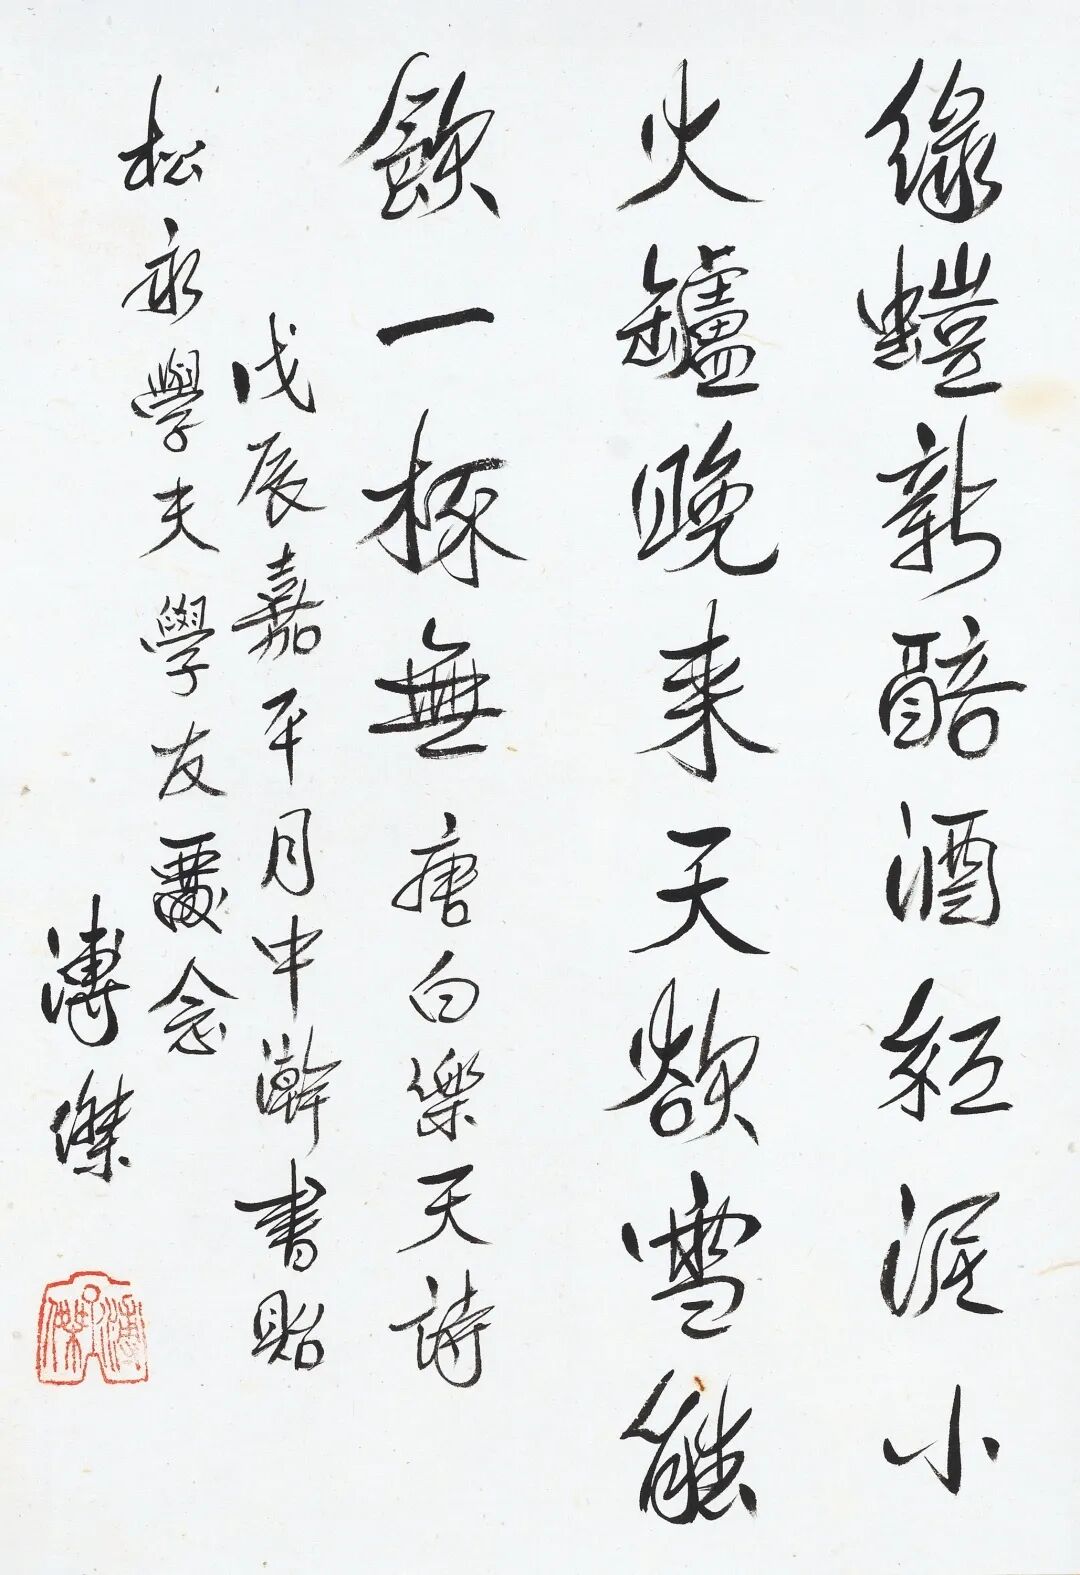 綠螘新醅酒紅泥小
火鑪晚来天欲雪能
飲一杯無唐白樂天詩
戊辰嘉平月中澣書貽
松永學夫學友霎念
溥傑
溥傑之印